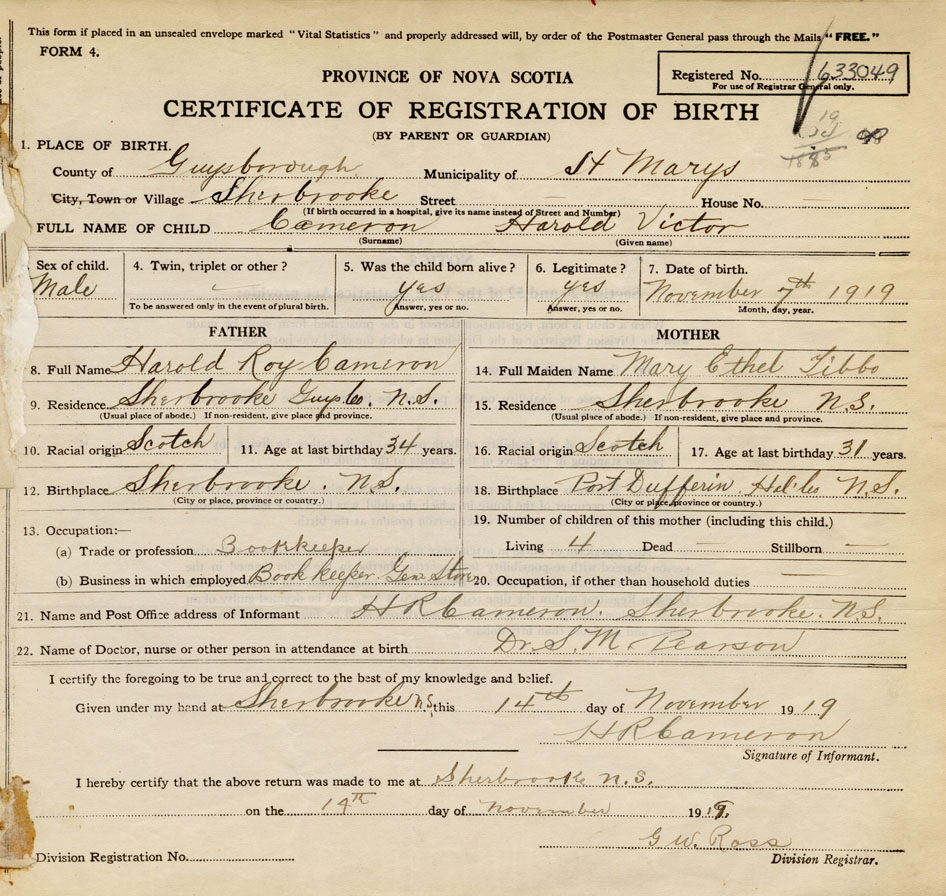 This form if placed in an unsealed envelope marked "Vital Statistics" and properly addressed will, by order of the Postmaster General pass through the Mails "FREE."
FORM 4.
PROVINCE OF NOVA SCOTIA
Registered No. 633049
For use of Registrar General only.
CERTIFICATE OF REGISTRATION OF BIRTH
(BY PARENT OR GUARDIAN)
1. PLACE OF BIRTH.
County of Guysborough Municipality of St Marys
City, Town or Village Sherbrooke Street — House No. —
(If birth occurred in a hospital, give its name instead of Street and Number)
FULL NAME OF CHILD Cameron Harold Victor
(Surname) (Given name)
Sex of child. 4. Twin, triplet or other? 5. Was the child born alive? 6. Legitimate? 7. Date of birth.
Male - yes yes November 7th 1919
To be answered only in the event of plural birth. Answer, yes or no. Answer, yes or no. Month, day, year.
FATHER MOTHER
8. Full Name Harold Roy Cameron 14. Full Maiden Name Mary Ethel Tibbo
9. Residence Sherbrooke Guys. Co. N.S. 15. Residence Sherbrooke N.S.
(Usual place of abode.) If non-resident, give place and province. (Usual place of abode.) If non-resident, give place and province.
10. Racial origin Scotch 11. Age at last birthday 34 years. 16. Racial origin Scotch 17. Age at last birthday 31 years.
12. Birthplace Sherbrooke. N.S. 18. Birthplace Port Dufferin Hal. Co N.S.
(City or place, province or country.) (City or place, province or country.)
13. Occupation:— 19. Number of children of this mother (including this child.)
(a) Trade or profession Bookkeeper Living 4 Dead — Stillborn —
(b) Business in which employed Book keeper. Gen. Store 20. Occupation, if other than household duties —
21. Name and Post Office address of Informant H R Cameron. Sherbrooke. N.S.
22. Name of Doctor, nurse or other person in attendance at birth Dr. S. M. Pearson
I certify the foregoing to be true and correct to the best of my knowledge and belief.
Given under my hand at Sherbrooke N.S. this 14th day of November 1919
H R Cameron
Signature of Informant.
I hereby certify that the above return was made to me at Sherbrooke N.S.
on the 14th day of November 1919.
G. W. Ross
Division Registration No. Division Registrar.